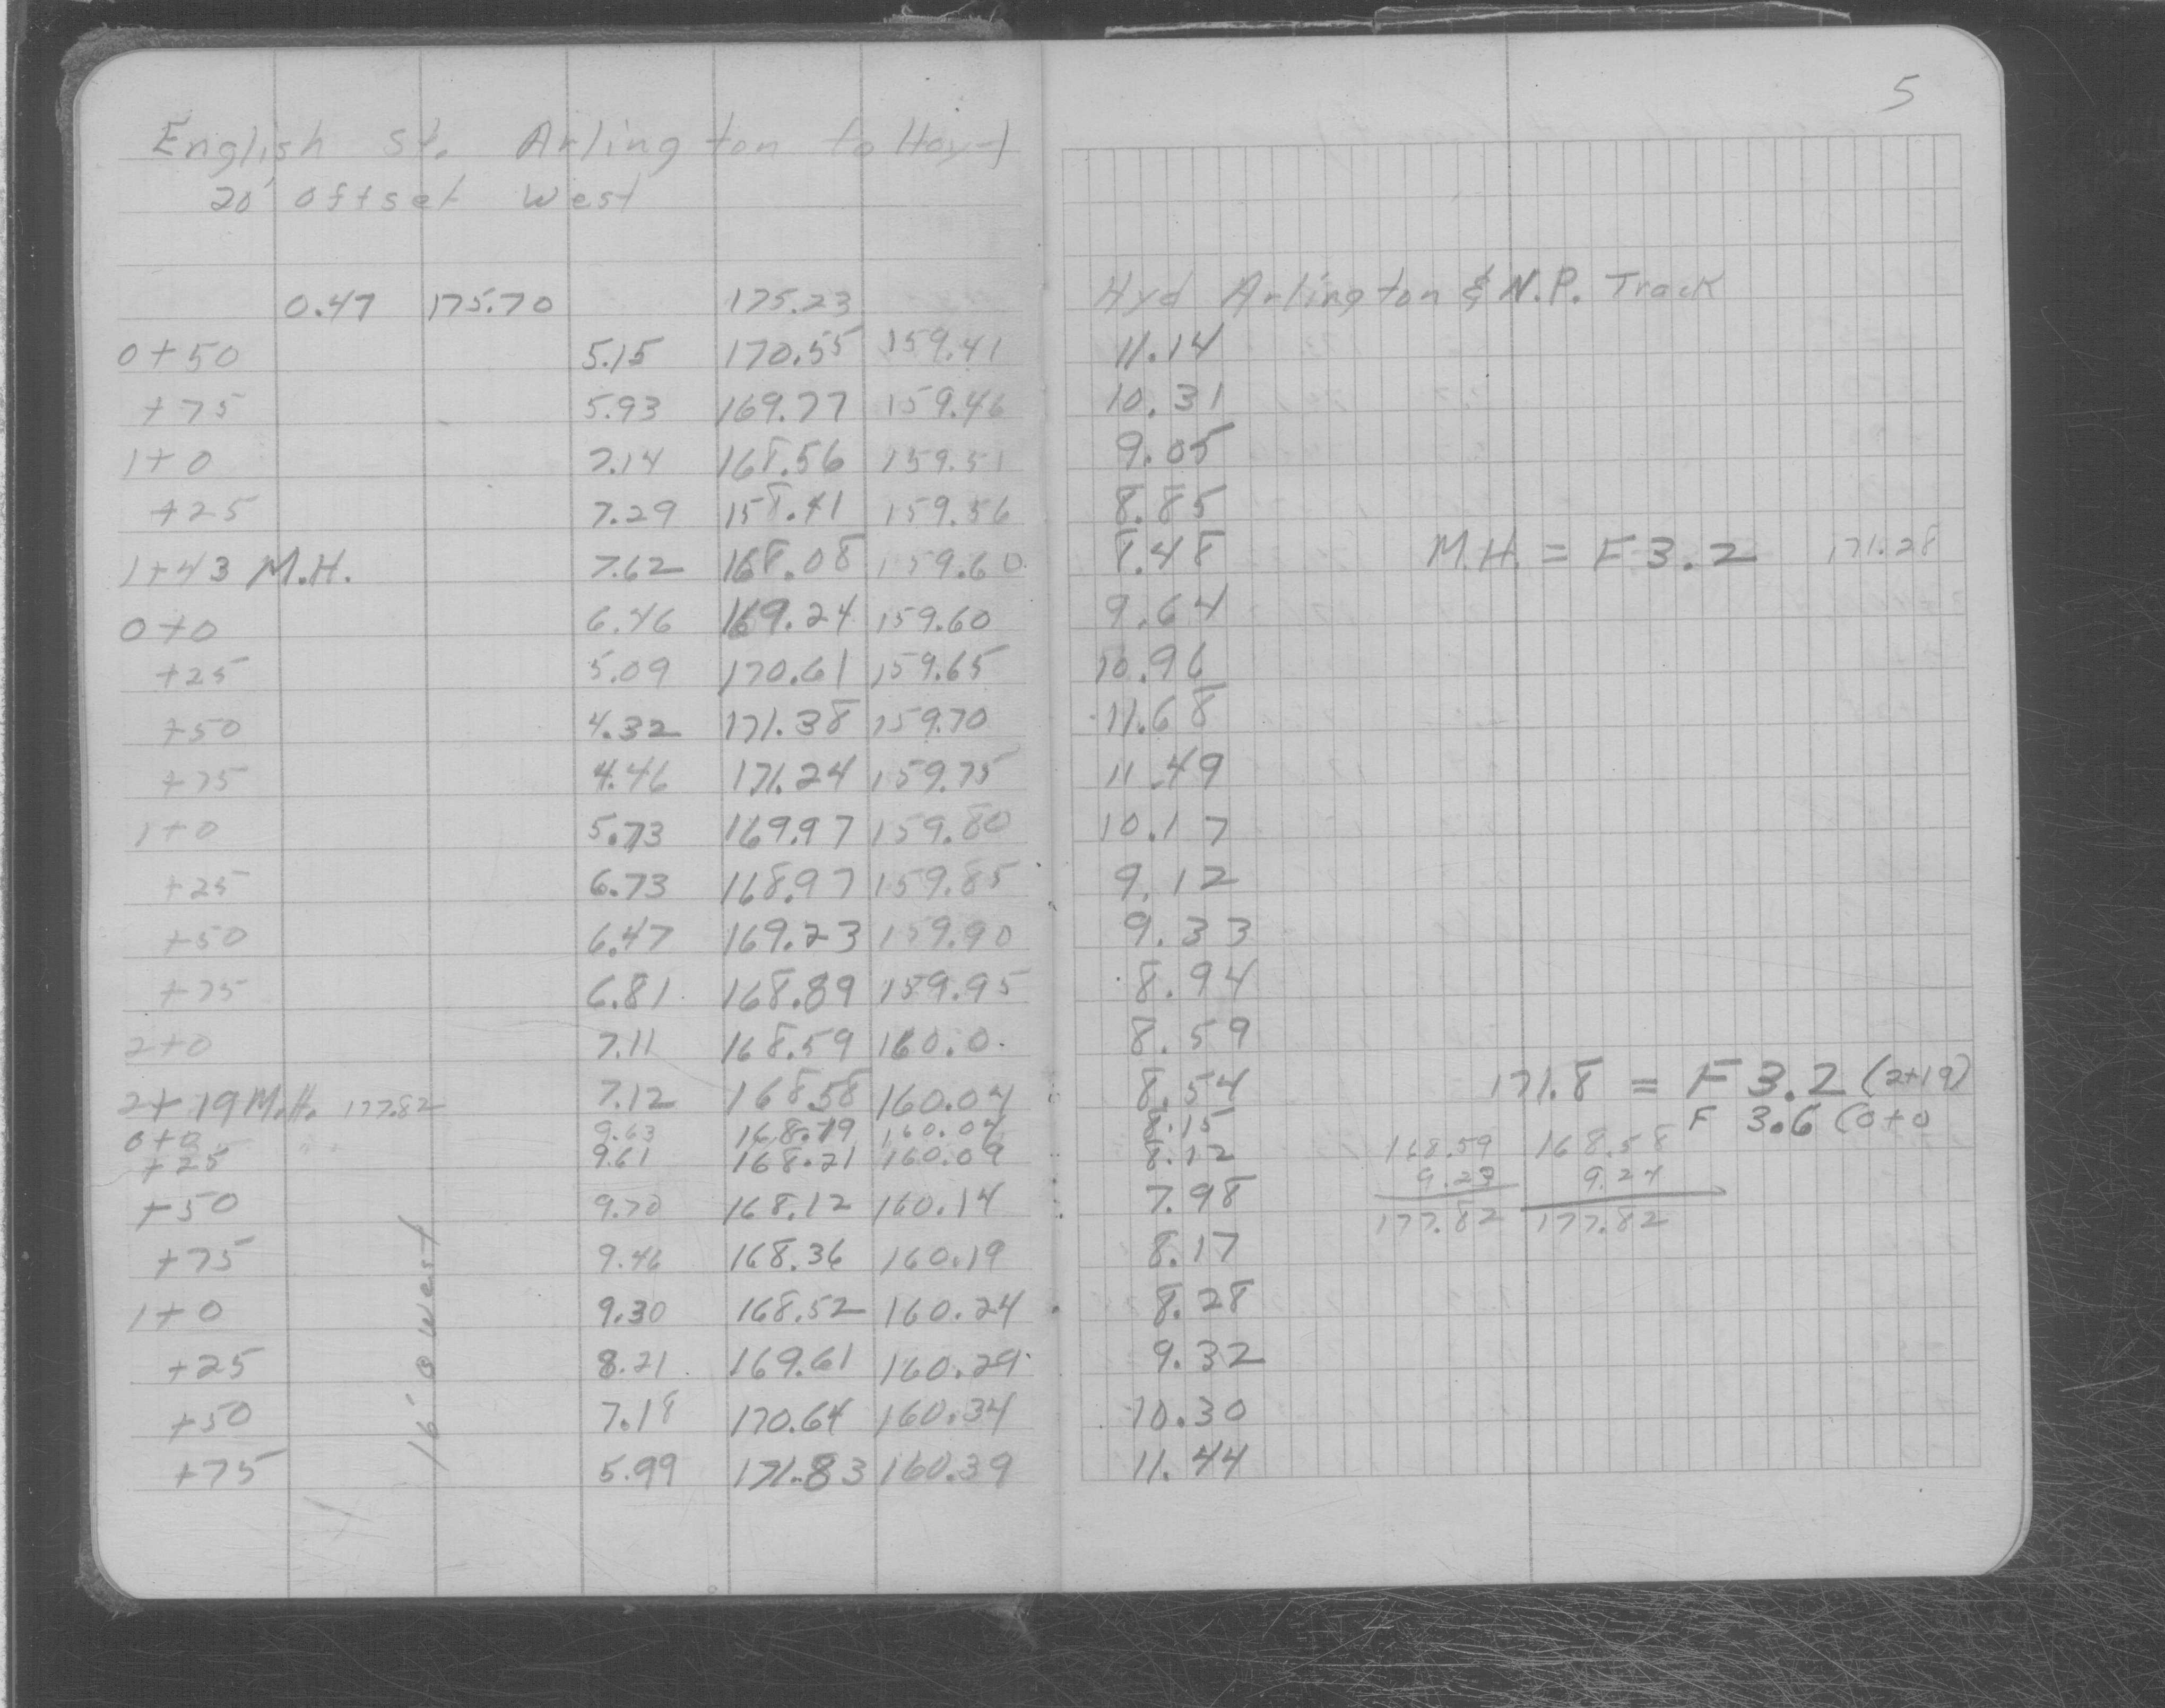 5
English St. Arlington to Hoyt
20' offset West
0.47 175.70 175.23 Hyd Arlington & N.P. Track
0+50 5.15 170.55 159.41 11.14
+75 5.93 169.77 159.46 10.31
1+0 7.14 168.56 159.51 9.05
+25 7.29 158.41 159.56 8.85
1+43 M.H. 7.62 168.08 159.60 8.48 M.H. = F 3.2 171.28
0+0 6.46 169.24 159.60 9.64
+25 5.09 170.61 159.65 10.96
+50 4.32 171.38 159.70 11.68
+75 4.46 171.24 159.75 11.49
1+0 5.73 169.97 159.80 10.17
+25 6.73 168.97 159.85 9.12
+50 6.47 169.23 159.90 9.33
+75 6.81 168.89 159.95 8.94
2+0 7.11 168.59 160.0 8.59
2+19 M.H. 177.82 7.12 168.58 160.04 8.54 171.8 = F 3.2 (2+19)
0+0 9.63 168.19 160.04 8.15 F 3.6 (0+0
+25 9.61 168.21 160.09 8.12 168.59 168.58
9.23 9.24
+50 9.70 168.12 160.14 7.98 177.82 177.82
+75 9.46 168.36 160.19 8.17
1+0 9.30 168.52 160.24 8.28
+25 8.21 169.61 160.29 9.32
+50 7.18 170.64 160.34 10.30
+75 5.99 171.83 160.39 11.44
16' o West